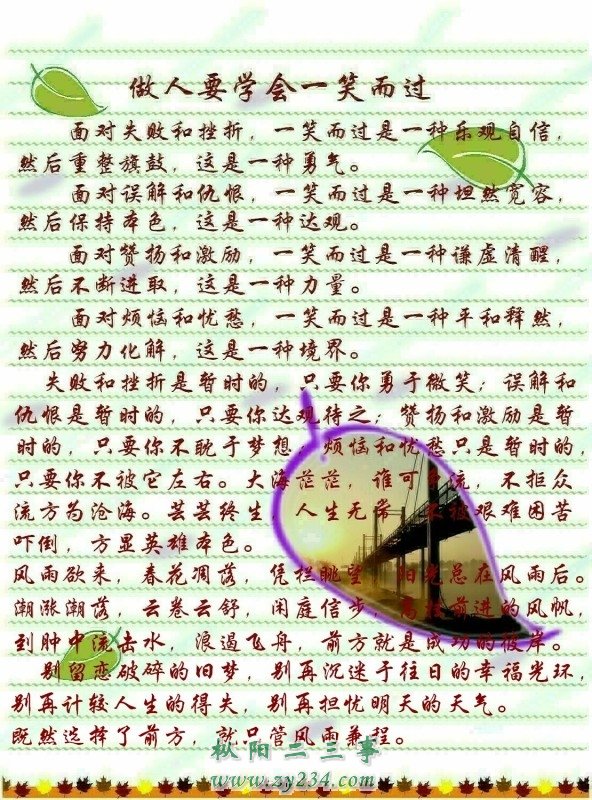 做人要学会一笑而过
面对失败和挫折，一笑而过是一种乐观自信，
然后重整旗鼓，这是一种勇气。
面对误解和仇恨，一笑而过是一种坦然宽容，
然后保持本色，这是一种达观。
面对赞扬和激励，一笑而过是一种谦虚清醒，
然后不断进取，这是一种力量。
面对烦恼和忧愁，一笑而过是一种平和释然，
然后努力化解，这是一种境界。
失败和挫折是暂时的，只要你勇于微笑；误解和
仇恨是暂时的，只要你达观待之；赞扬和激励是暂
时的，只要你不耽于梦想；烦恼和忧愁只是暂时的，
只要你不被它左右。大海茫茫，谁可 流，不拒众
流方为沧海。芸芸终生，人生无常， 不被艰难困苦
吓倒，方显英雄本色。
风雨欲来，春花凋落，凭栏眺望，阳光总在风雨后。
潮涨潮落，云卷云舒，闲庭信步，高挂前进的风帆，
到肿中流击水，浪遏飞舟，前方就是成功的彼岸。
别留恋破碎的旧梦，别再沉迷于往日的幸福光环，
别再计较人生的得失，别再担忧明天的天气。
既然选择了前方，就只管风雨兼程。
枞阳二三事
www.zy234.com